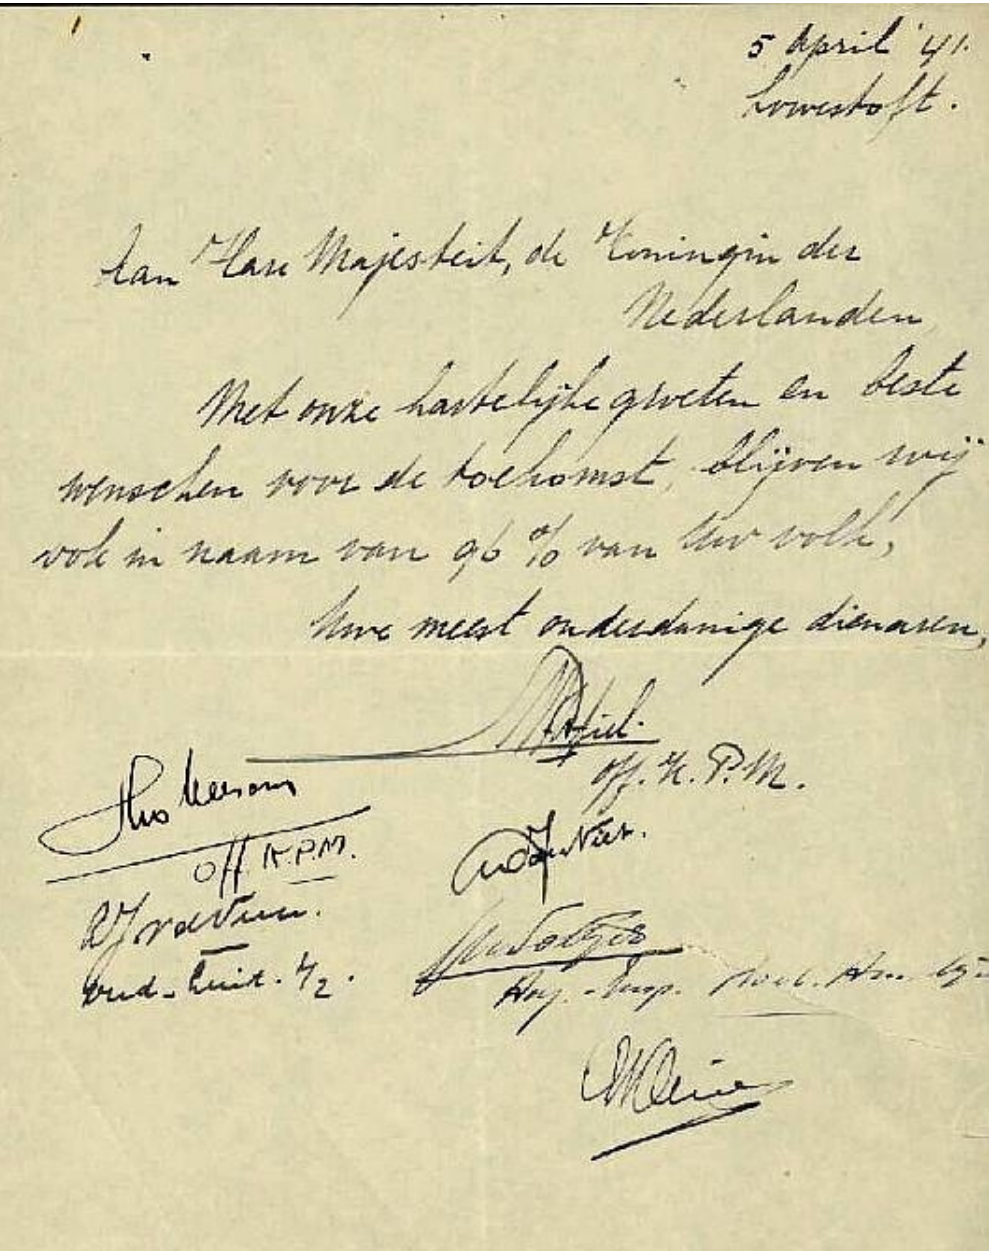 5 April '41.
Lowestoft.
Aan Hare Majesteit, de Koningin der
Nederlanden,
Met onze hartelijke groeten en beste
wenschen voor de toekomst, blijven wij
ook in naam van 96 % van Uw volk,
Uwe meest onderdanige dienaren,
off. K. P. M.
off K.P.M.